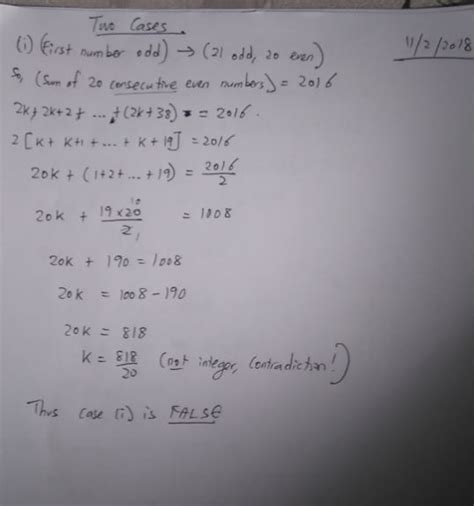 Two Cases.
11/2/2018
(i) (First number odd) → (21 odd, 20 even)
So, (Sum of 20 consecutive even numbers) = 2016
2k + 2k+2 + ... + (2k+38) = 2016.
2 [k + k+1 + ... + k+19] = 2016
20k + (1+2+...+19) = 2016/2
20k + 19×20/2 = 1008
20k + 190 = 1008
20k = 1008 - 190
20k = 818
k = 818/20 (not integer, contradiction!)
Thus case (i) is FALSE